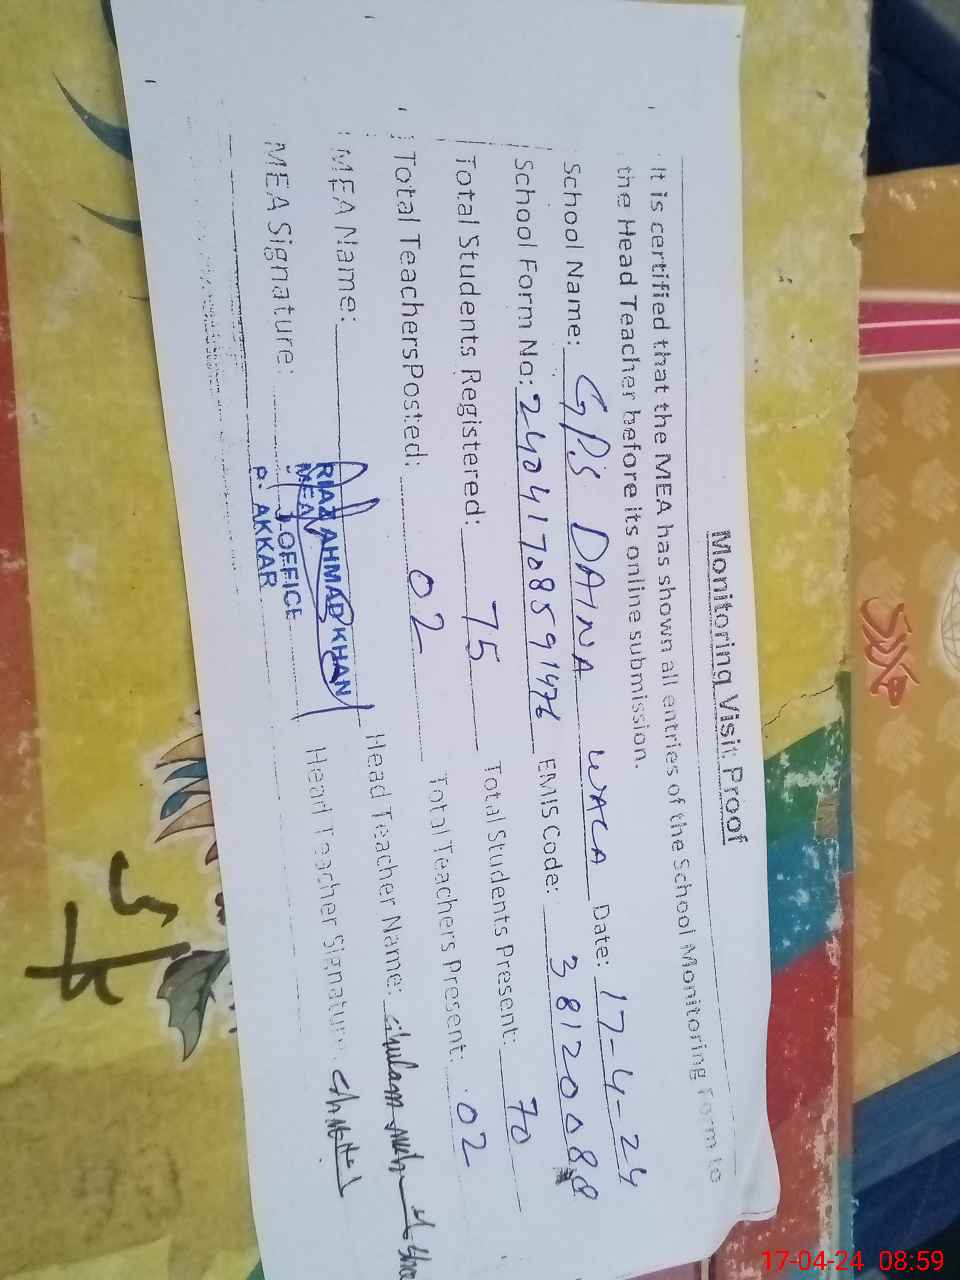 Monitoring Visit Proof
It is certified that the MEA has shown all entries of the School Monitoring Form to
the Head Teacher before its online submission.
School Name: GPS DAINA WALA Date: 17-4-24
School Form No: 24041708591476 EMIS Code: 38120088
Total Students Registered: 75 Total Students Present: 70
Total Teachers Posted: 02 Total Teachers Present: 02
MEA Name: RIAZ AHMAD KHAN Head Teacher Name: Ghulam
MEA OFFICE
MEA Signature: AKKAR Head Teacher Signature:
17-04-24 08:59